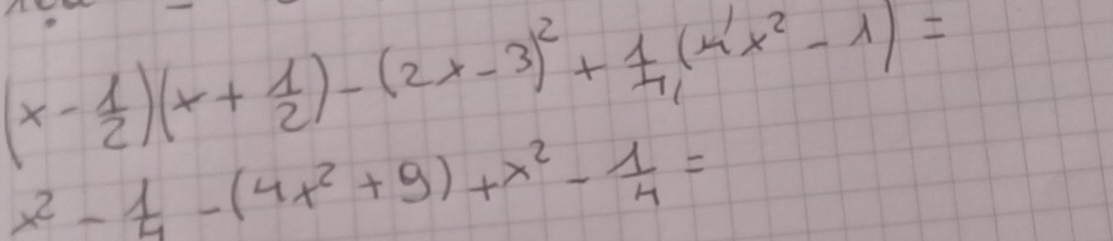 (x - 1/2)(x + 1/2) - (2x - 3)² + 1/4 (4x² - 1) =
x² - 1/4 - (4x² + 9) + x² - 1/4 =